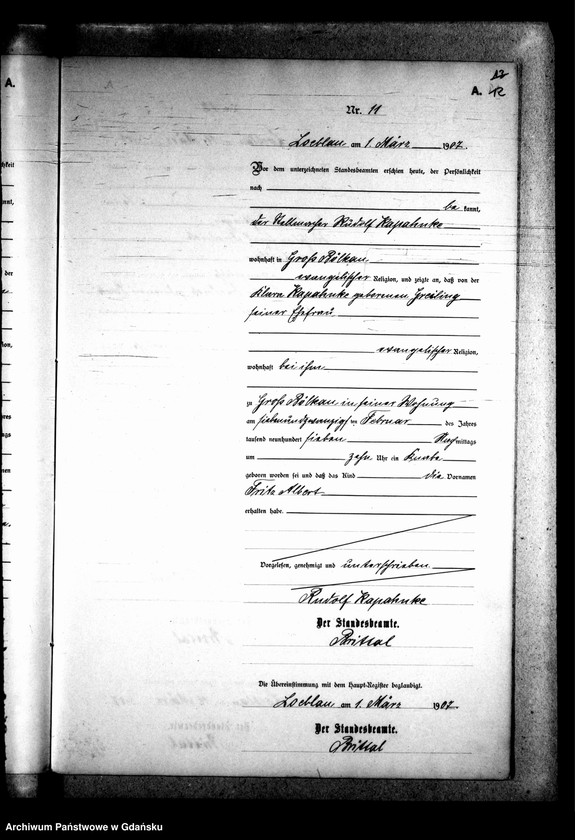 A.
12
A. 12
Nr. 11
Loeblau am 1. März 1907.
Vor dem unterzeichneten Standesbeamten erschien heute, der Persönlichkeit
nach
be kannt,
der Stellmacher Rudolf Kapahnke
wohnhaft in Groß Bölkau
evangelischer Religion, und zeigte an, daß von der
Klara Kapahnke geborenen Greiling
seiner Ehefrau
evangelischer Religion,
wohnhaft bei ihm
zu Groß Bölkau in seiner Wohnung
am siebenundzwanzigsten Februar des Jahres
tausend neunhundert sieben Nachmittags
um zehn Uhr ein Knabe
geboren worden sei und daß das Kind die Vornamen
Fritz Albert
erhalten habe.
Vorgelesen, genehmigt und unterschrieben
Rudolf Kapahnke
Der Standesbeamte.
Die Übereinstimmung mit dem Haupt-Register beglaubigt.
Loeblau am 1. März 1907.
Der Standesbeamte.
Archiwum Państwowe w Gdańsku